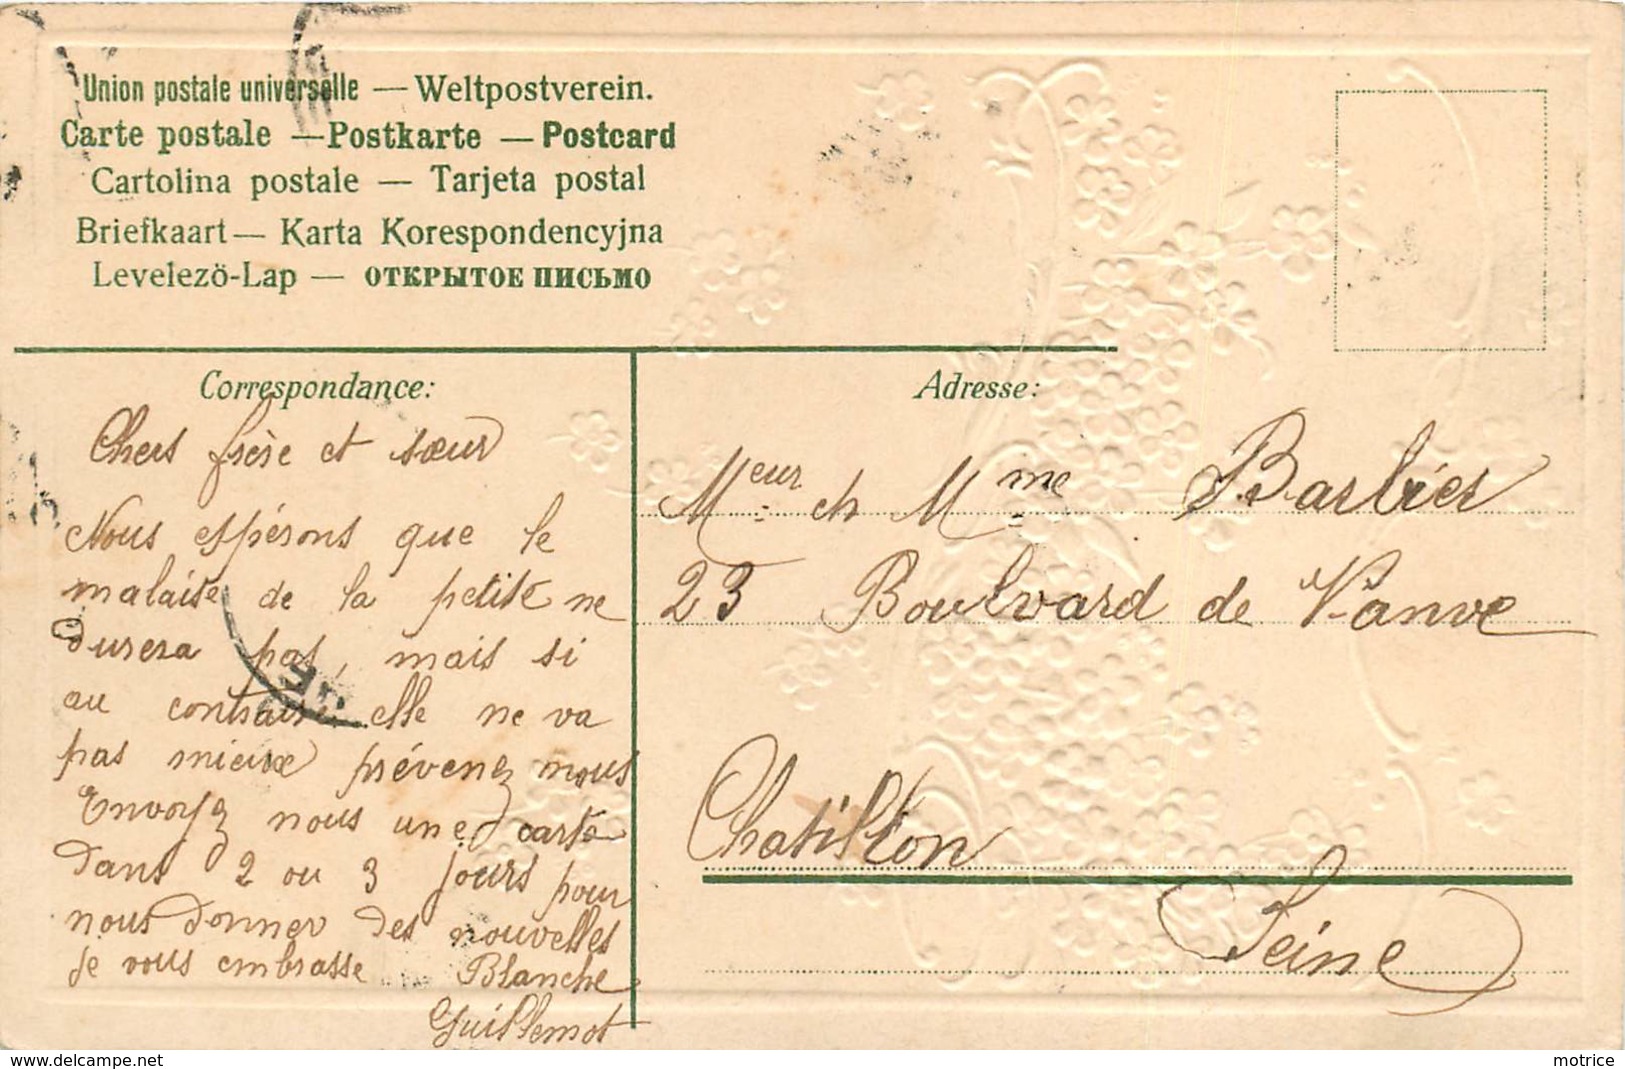 Union postale universelle — Weltpostverein.
Carte postale — Postkarte — Postcard
Cartolina postale — Tarjeta postal
Briefkaart — Karta Korespondencyjna
Levelezö-Lap — ОТКРЫТОЕ ПИСЬМО
Correspondance:
Chers frère et sœur
Nous espérons que le
malaise de la petite ne
durera pas, mais si
au contraire elle ne va
pas mieux prévenez nous
Envoyez nous une carte
dans 2 ou 3 jours pour
nous donner des nouvelles
je vous embrasse Blanche
Guillemot
Adresse:
Meur et Mme Barbier
23 Boulvard de Vanve
Chatillon
Seine
https://www.delcampe.net
motrice